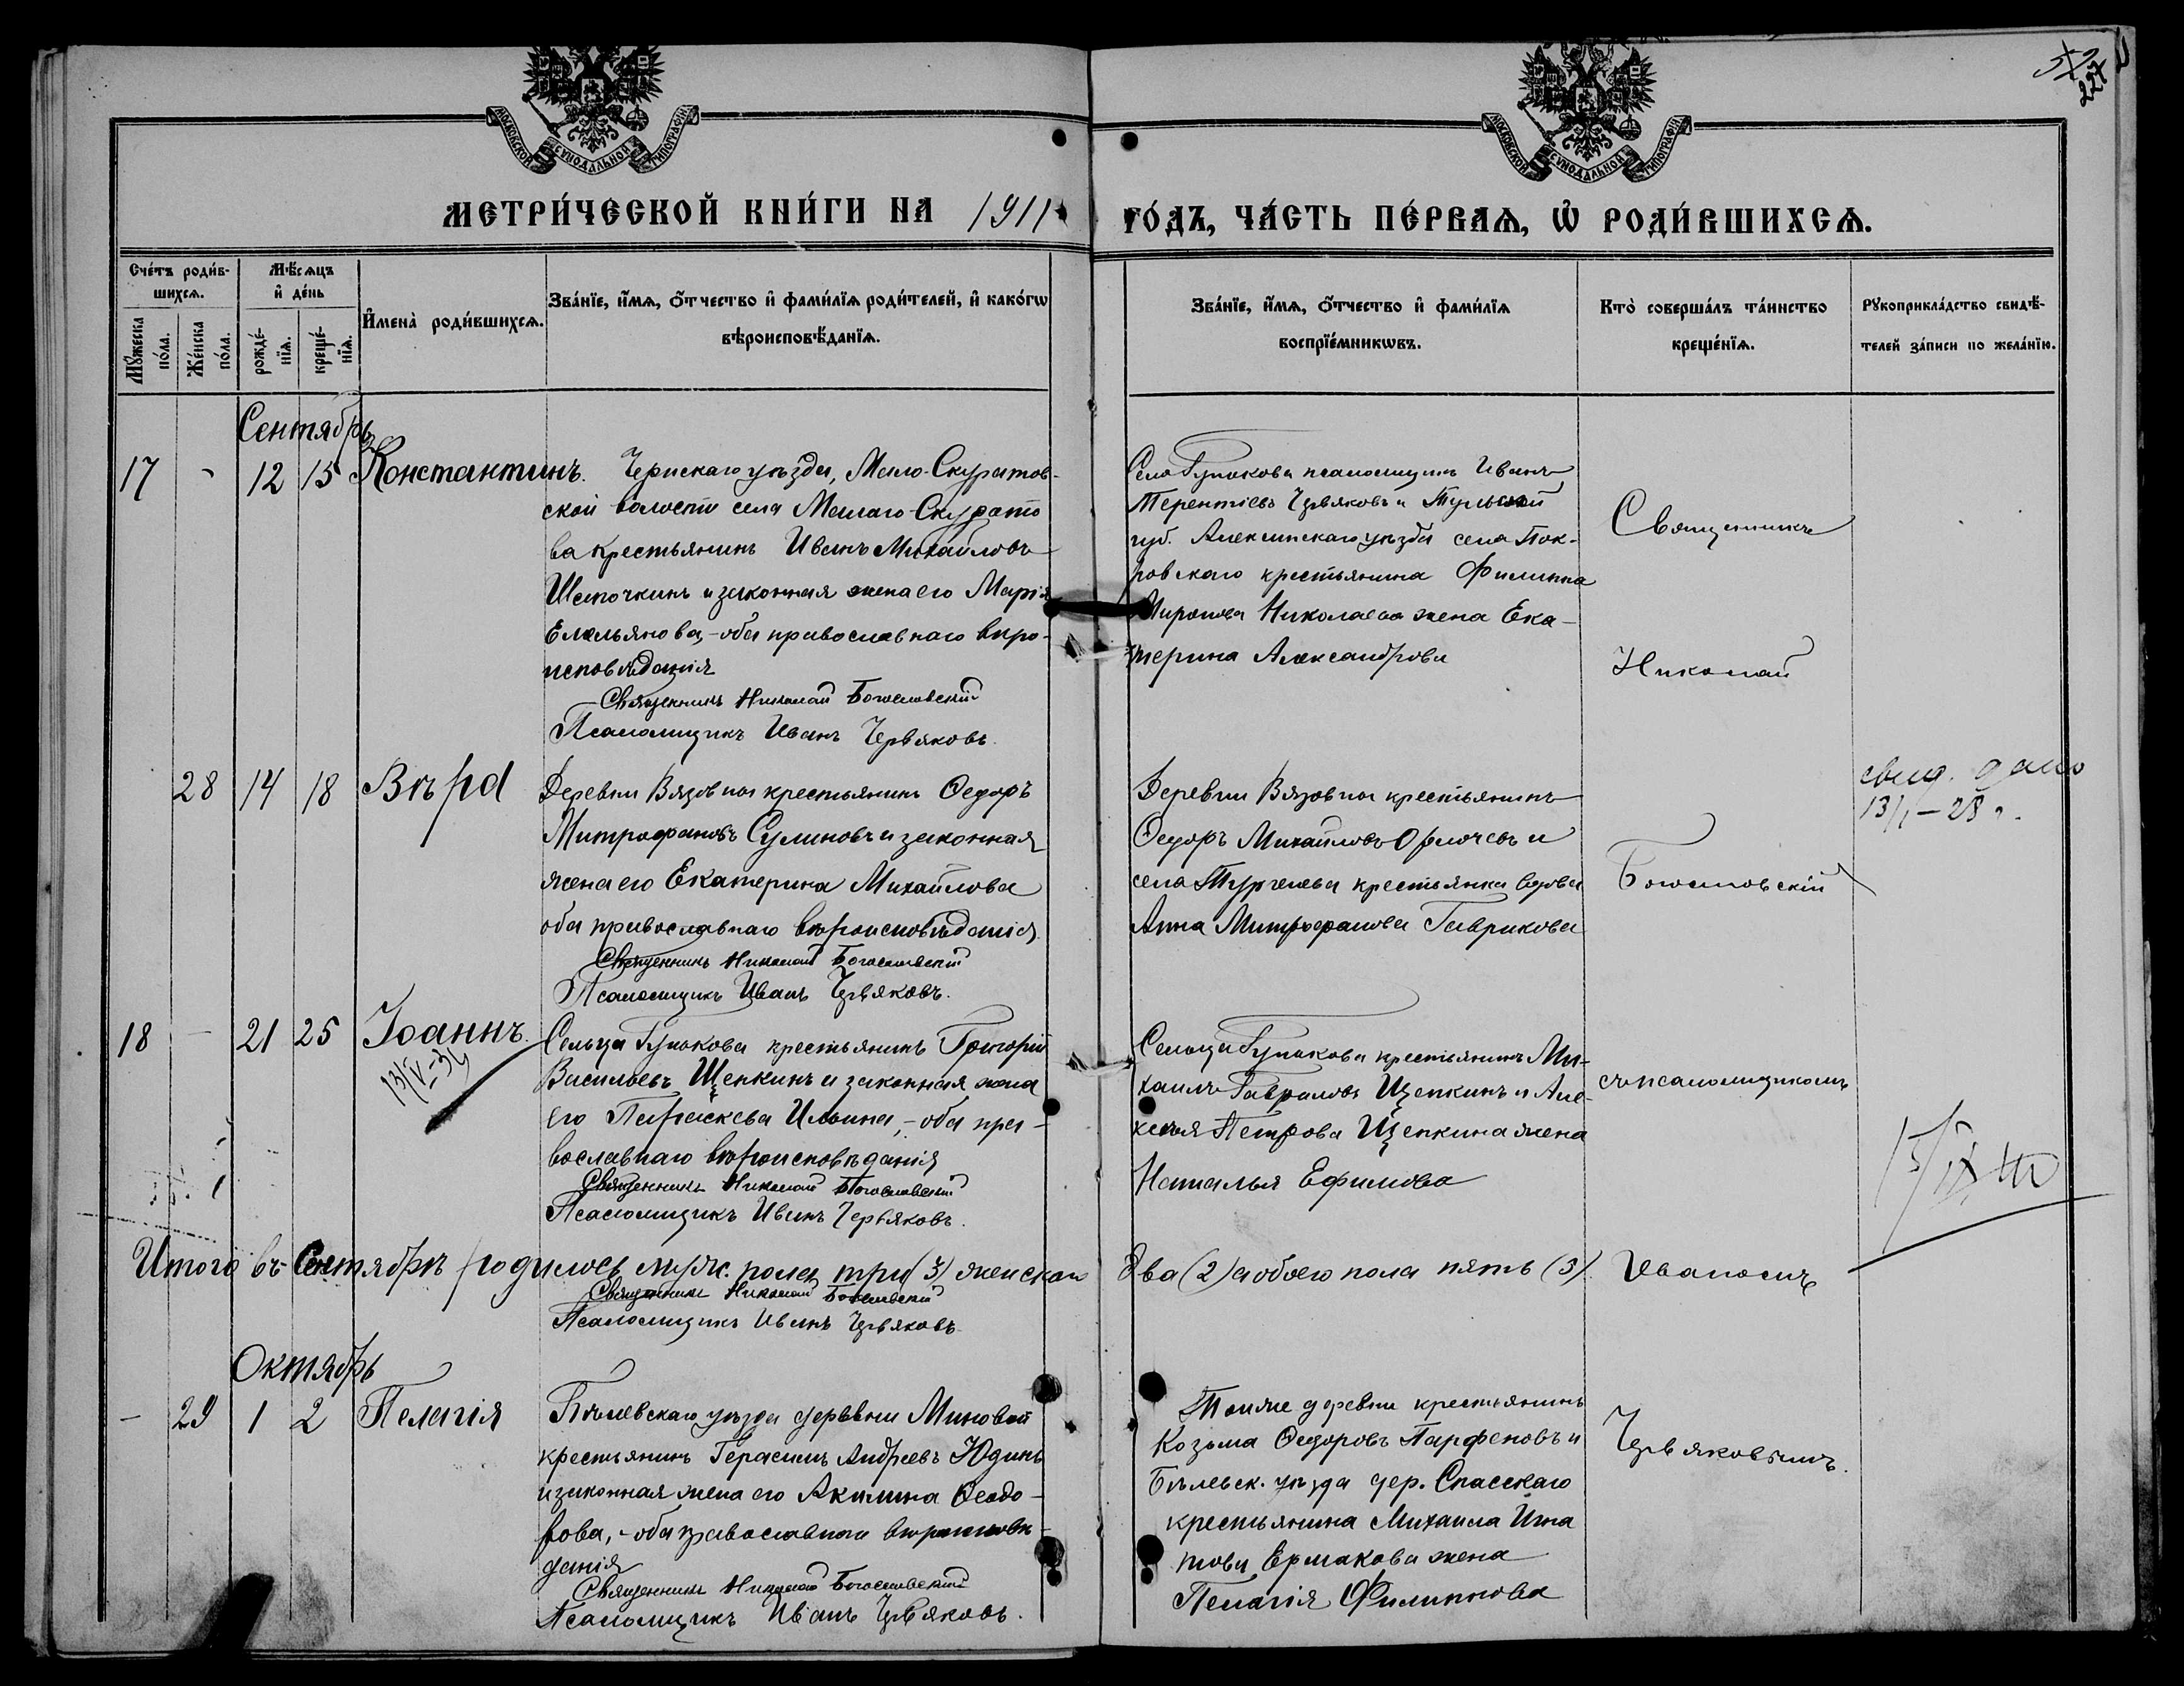 227
МОСКОВСКОЙ СѴНОДАЛЬНОЙ ТИПОГРАФІИ
МОСКОВСКОЙ СѴНОДАЛЬНОЙ ТИПОГРАФІИ
МЕТРИ́ЧЕСКОЙ КНИ́ГИ НА 1911 ГО́ДЪ, ЧА́СТЬ ПЕ́РВАѦ, Ѡ҆ РОДИ́ВШИХСѦ.
Сче́тъ роди́в-
шихсѧ.
Мꙋ́жеска
по́ла.
Же́нска
по́ла.
Мѣ́сѧцъ
и҆ де́нь
рожде́-
нїѧ.
креще́-
нїѧ.
И҆мена̀ роди́вшихсѧ.
Зва́нїе, и҆́мѧ, ѻ҆́тчество и҆ фами́лїѧ роди́телей, и҆ како́гѡ
вѣроисповѣ́данїѧ.
Зва́нїе, и҆́мѧ, ѻ҆́тчество и҆ фами́лїѧ
воспрїе́мникѡвъ.
Кто̀ соверша́лъ та́инство
креще́нїѧ.
Рꙋкоприкла́дство свидѣ́-
телей за́писи по жела́нїю.
Сентябрь
17 - 12 15 Константинъ.
Чернскаго уѣзда, Мало-Скуратов-
ской волости села Малаго-Скурато
ва крестьянинъ Иванъ Михайловъ
Шапочкинъ и законная жена его Марія
Емельянова, - оба православнаго вѣро-
исповѣданія
Священникъ Николай Богословскій
Псаломщикъ Иванъ Червяковъ.
Село псаломщикъ Иванъ
Терентіевъ Червяковъ и Тульской
губ. Алексинскаго уѣзда села Пок-
ровскаго крестьянина Филиппа
Миронова Николаева жена Ека-
терина Александрова
Священникъ
Николай
28 14 18 Вѣра
Деревни Вязовна крестьянинъ Ѳедоръ
Митрофановъ Сулиновъ и законная
жена его Екатерина Михайлова
оба православнаго вѣроисповѣданія.
Священникъ Николай Богословскій
Псаломщикъ Иванъ Червяковъ.
Деревни Вязовна крестьянинъ
Ѳедоръ Михайловъ и
села Тургенева крестьянка вдова
Анна Митрофанова Гаврикова
Богословскій
свид. дано
13/I-28 г.
18 - 21 25 Іоаннъ.
13/IV-34
Сельца крестьянинъ Григорій
Васильевъ Щепкинъ и законная жена
его Параскева Ильина, - оба пра-
вославнаго вѣроисповѣданія
Священникъ Николай Богословскій
Псаломщикъ Иванъ Червяковъ.
Сельца крестьянинъ Ми-
хаилъ Гавриловъ Щепкинъ и Але-
ксѣя Петрова Щепкина жена
Наталья Ефимова
съ псаломщикомъ
15/IX
Итого въ Сентябрѣ родилось муж. пола три (3) женскаго два (2) а обоего пола пять (5).
Священникъ Николай Богословскій
Псаломщикъ Иванъ Червяковъ.
Иваномъ
Октябрь
- 29 1 2 Пелагія
Бѣлевскаго уѣзда деревни Миновой
крестьянинъ Герасимъ Андреевъ Юдинъ
и законная жена его Акилина Ѳеодо-
рова, - оба православнаго вѣроисповѣ-
данія
Священникъ Николай Богословскій
Псаломщикъ Иванъ Червяковъ.
Тоиже деревни крестьянинъ
Козьма Ѳедоровъ Парфеновъ и
Бѣлевск. уѣзда дер. Спасскаго
крестьянина Михаила Игна
това Ермакова жена
Пелагія Филиппова
Червяковымъ.